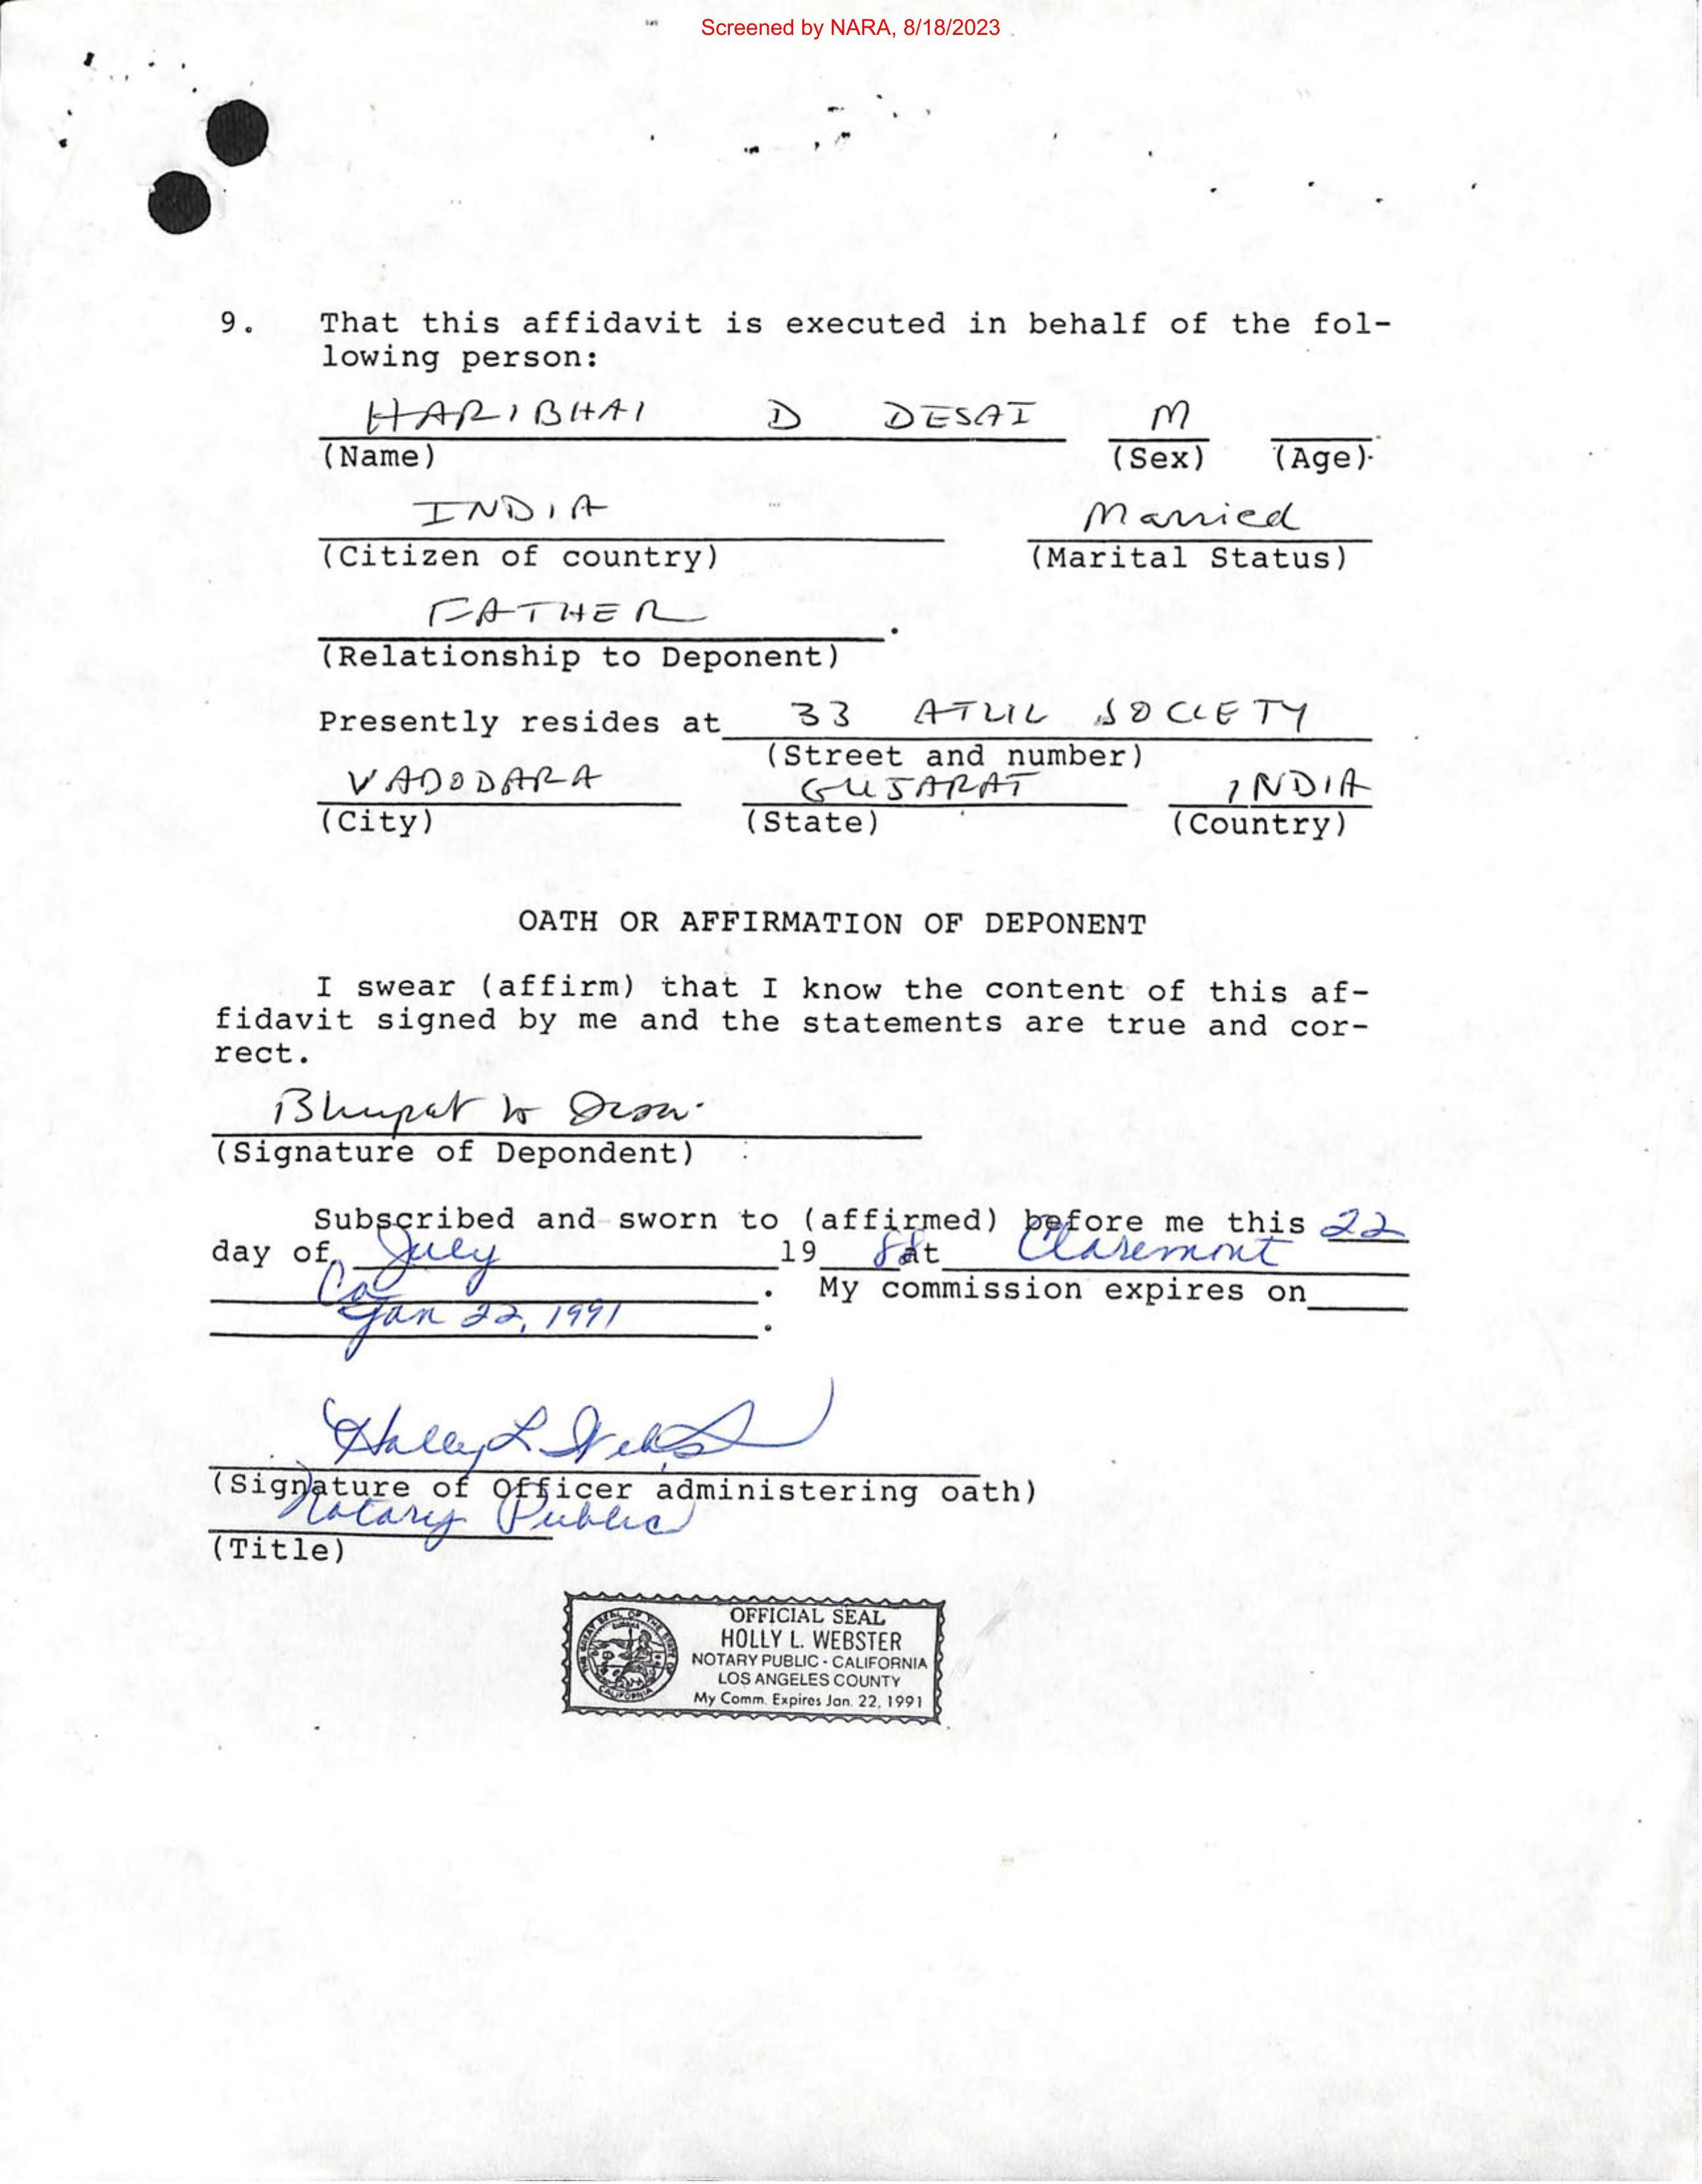 Screened by NARA, 8/18/2023
9. That this affidavit is executed in behalf of the fol-
lowing person:
HARIBHAI D DESAI M
(Name) (Sex) (Age)
INDIA Married
(Citizen of country) (Marital Status)
FATHER
(Relationship to Deponent)
Presently resides at 33 ATUL SOCIETY
(Street and number)
VADODARA GUJARAT INDIA
(City) (State) (Country)
OATH OR AFFIRMATION OF DEPONENT
I swear (affirm) that I know the content of this af-
fidavit signed by me and the statements are true and cor-
rect.
Bhupat
(Signature of Depondent)
Subscribed and sworn to (affirmed) before me this 22
day of July 19 88 at Claremont
Ca. My commission expires on
Jan 22, 1991.
Holly L Webster
(Signature of Officer administering oath)
Notary Public
(Title)
OFFICIAL SEAL
HOLLY L. WEBSTER
NOTARY PUBLIC - CALIFORNIA
LOS ANGELES COUNTY
My Comm. Expires Jan. 22, 1991
THE GREAT SEAL OF THE STATE OF CALIFORNIA